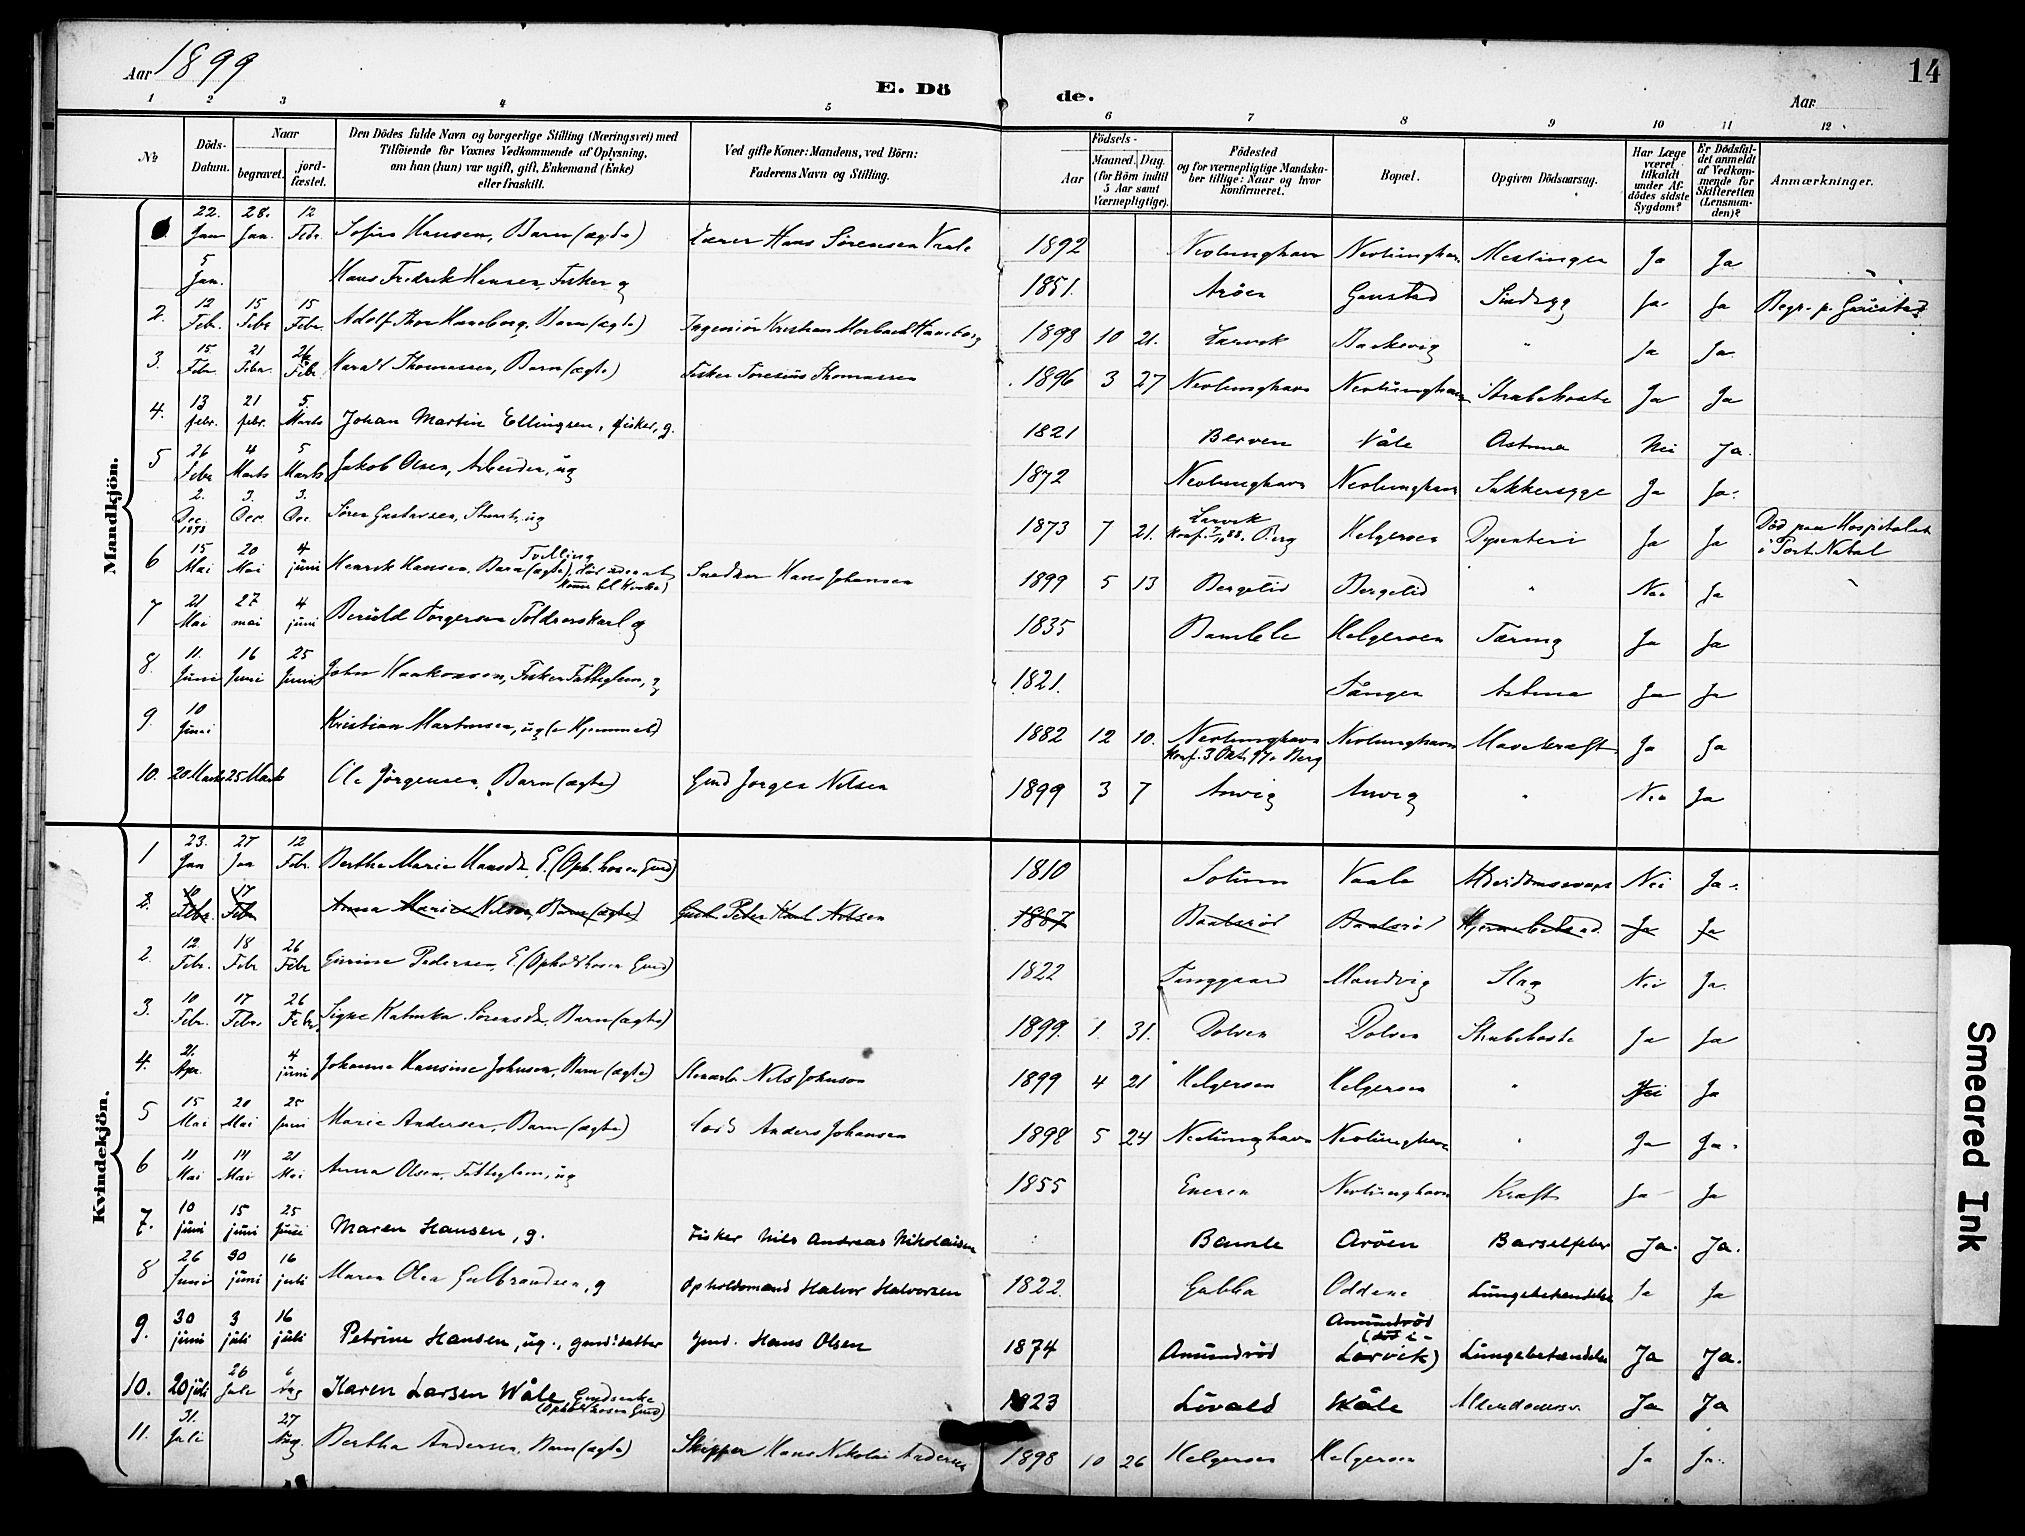 Aar 1899
E. Dö
de.
Aar
14
1 2 3 4 5 6 7 8 9 10 11 12
№
Döds-Datum.
Naar
begravet.
jord-fæstet.
Den Dödes fulde Navn og borgerlige Stilling (Næringsvei) med
Tilföiende for Voxnes Vedkommende af Oplysning,
om han (hun) var ugift, gift, Enkemand (Enke)
eller fraskilt.
Ved gifte Koner: Mandens, ved Börn:
Faderens Navn og Stilling.
Födsels-
Aar
Maaned. Dag.
(for Börn indtil
5 Aar samt
Værnepligtige).
Födested
og for værnepligtige Mandska-
ber tillige: Naar og hvor
konfirmeret.
Bopæl.
Opgiven Dödsaarsag.
Har Læge
været
tilkaldt
under Af-
dödes sidste
Sygdom?
Er Dödsfal-
det anmeldt
af Vedkom-
mende for
Skifteretten
(Lensman-
den)?
Anmærkninger.
Mandkjön.
22. Jan 28. Jan. 12 Febr. Sofus Hansen, Barn (ægte) Hans Sørensen Vaale 1892 Nevlunghavn Nevlunghavn Meslinger Ja Ja
5 Jan. Hans Fredrik Hansen, Fisker g 1851. Arøen Ja Ja
2. 12 Febr. 15 Febr 15 Febr. Adolf Thor Haneborg, Barn (ægte) Ingeniør Kristian Morbech Haneborg 1898 10 21. Larvik " Ja Ja
3. 15 Febr. 21 Febr. 26 Febr. Harald Thomassen, Barn (ægte) Fisker Thomassen 1896 3 27 Nevlunghavn Nevlunghavn Strubehoste Ja Ja
4. 13 febr. 21 febr. 5. Marts Johan Martin Ellingsen, fisker, g. 1821 Berven Våle Astma Nei Ja.
5 26 Febr 4 Marts 5 Marts Jakob Olsen, Arbeider, ug 1872 Nevlunghavn Nevlunghavn Sukkersyge Ja Ja.
2. Dec. 1898 3. Dec. 3. Dec. Søren Gustavsen, ug 1873 7 21. Larvik Konf. Berg Helgeroen Dysenteri Ja Ja Død paa Hospitalet i Port Natal
6 15 Mai 20 Mai 4 juni Henrik Hansen, Barn (ægte), Tvilling Snedker Hans Johansen 1899 5 13 Bergelid Bergelid " Nei Ja
7 21 Mai 27 mai 4 juni Torgersen Toldroerskarl g 1835 Bamble Helgeroen Tæring Ja Ja
8. 11. Juni 16 Juni 25 Juni John Haakonsen, Fisker Fattiglem, g 1821. Tangen Astma Ja Ja
9. 10 Juni Kristian Martinsen, ug (e Hjemmet) 1882 12 10. Nevlunghavn Konf. 3 Okt. 97 i Berg Nevlunghavn Mavekræft Ja Ja
10. 20 Marts 25 Marts Ole Jörgensen, Barn (ægte) Gmd Jorgen Nilsen 1899 3 7 Anvig Anvig " Nei Ja
Kvindekjön.
1 23. Jan 27 Jan 12 Febr. Berthe Marie Hansdt. E. (Oph. hos en Gmd) 1810 Solum Vaale Nei Ja.
2. 10 Febr. 17 Febr Anna Marie Nilsen, Barn (ægte) Peter Karl Nilsen 1887 Ja Ja
2. 12. Febr. 18 Febr 26 Febr Gurine Pedersen, E. (Ophold hos en Gmd) 1822 Tanggaard Mandvig Slag Nei Ja.
3. 10 Febr. 17 Febr. 26 Febr. Signe Katinka Sørensdt. Barn (ægte) 1899. 1. 31. Dolven Dolven Strubehoste Ja Ja
4. 21. Apr. 4 juni Johanne Hansine Johnsen, Barn (ægte) Nils Johnson 1899 4 21 Helgeroen Helgeroen " Nei Ja
5 15 Mai 20 Mai 25 Juni Marie Andersen, Barn (ægte) Lods Anders Johansen 1898 5 24 Nevlunghavn Nevlunghavn " Ja Ja.
6 11 Mai 14 Mai 21 Mai Anna Olsen, Fattiglem, ug 1855 Eneren Nevlunghavn Kræft Ja Ja
7. 10 juni 15 juni 25 Juni Maren Hansen, g. Fisker Nils Andreas Nikolaisen Bamle Aröen Barselfeber Ja. Ja.
8 26 Juni 30 juni 16 juli Maren Olea Gulbrandsen, g Opholdsmand Halvor Halvorsen 1822. Oddane Lungebetændelse Ja Ja
9. 30 juni 3 juli 16 juli Petrine Hansen, ug., gmd.datter gmd. Hans Olsen 1874 Amundröd Amundröd (död i Larvik) Lungebetændelse Ja Ja.
10. 20 juli 26 Juli 6 Aug Karen Larsen Wåle Gmdsenke (Ophold hos en Gmd) 1823 Lövald Wåle Ja Ja
11. 31. Juli 27 Aug. Bertha Andersen, Barn (ægte) Skipper Hans Nikolai Andersen 1898 10 26 Helgeroen Helgeroen Ja Ja.
Smeared Ink